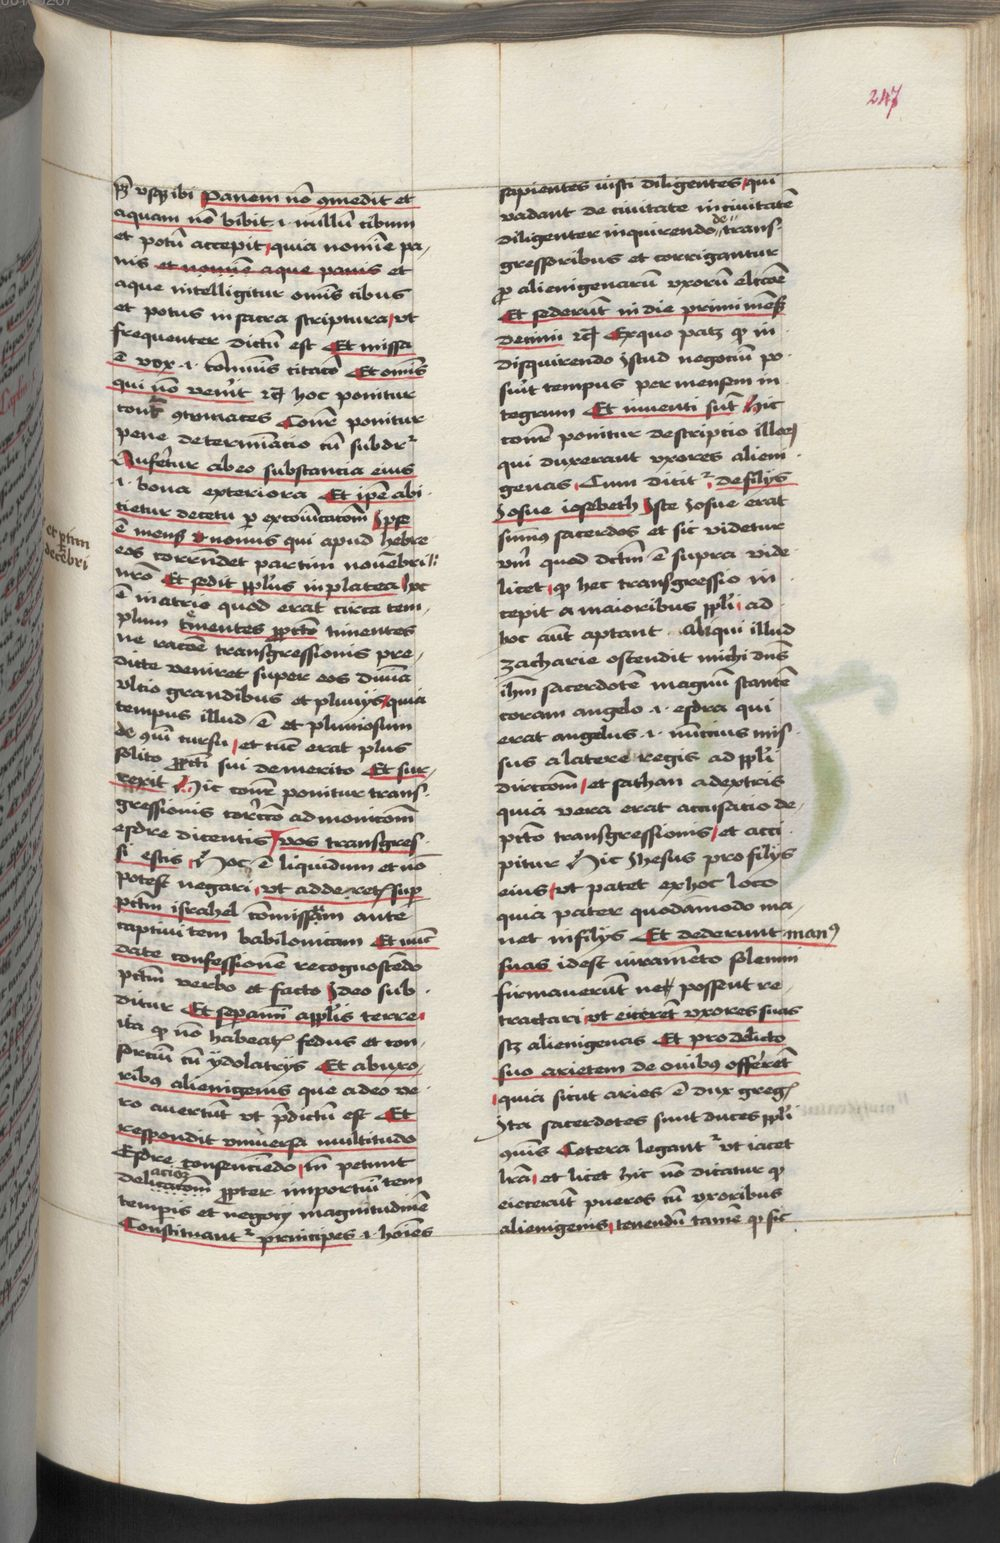 247
pꝫ vsqꝫ ibi Panem nō ꝯmedit et
aquam nō bibit ·i· nullū cibum
et potū accepit quia nomīe pa-
nis et nomīe aque panis et
aque intelligitur omīs cibus
et potus in sacra scriptura vt
frequenter dictum est Et missa
ē vox ·i· cōmūis citacō Et omīs
qui nō venͥit ⁊cꝫ hoc ponitur
contͣ ꝯtumaces Conͬ ponitur
pene determīacio cū subdrͬ
Auferetur ab eo substancia eius
·i· bona exteriora Et ip̄e abi-
cietur de cetu ꝑ excōicatōm Ipse
ē mensꝭ nonus qui apud hebre-
et ptim
decēbri
eos correndet partim nouēbri
nrō Et sedit ppl̄us in platea hoc
ē in atrio quod erat circa tem-
plum tmentes ppctō timentes
ne racōe transgressionis pre-
dicte veniret super eos diuīa
vltio grandibus et pluuijs quia
tempus illud ē et pluuiosum
de ꝯmī cursu et tūc erat plus
solito ppctī sui demerito Et sur-
rexit Hic conͬ ponitur trans-
gressionis correctō ad monicōm
esdre dicentis vos transgres-
si estis Hoc ē liquidum et nō
potest negari vt adderetꝭ sup
pctm israhel cōmissam ante
captiuitem babilonicam Et nūc
date confessionē recognoscēdo
pctm verbo et facto Ideo sub-
ditur Et sepamī a ppl̄is terre
ita ꝙ nō habeatꝭ fedus et con-
sorciū cū ydolatrijs Et ab uxo-
ribꝰ alienigenis que a deo ve-
ro auertūt vt p̄dictū est Et
respondit vniuersa multitudo
Esdre consenciēdo tn̄ petunt
delicacōm ꝓpter importūitem
acioꝫ
temꝑis et negocij magnitudinē
Constituantᷣ principes ·i· hoīes
sapientes iusti diligentes qui
vadant de ciuitate in ciuitatē
diligenter inquirendo de trans-
gressoribus et corrigantur
ꝑ alienigenarū vxorū eiectōē
Et sederūt in die primi mēsꝭ
decimi ⁊cꝫ Ex quo patꝫ ꝙ in
disquirendo istud negociū po-
suͥt tempus per mensem in-
tegrum Et inuenti sūt Hic
conͬ ponitur descriptio illoꝝ
qui duxerant vxores alieni-
genas Cum dicitᷣ de filijs
Iosue iosebeth Iste Iosue erat
sūmꝰ sacerdos et sic videtur
vmͥ quod dctm ē supra vide-
licet ꝙ hec transgressio in-
cepit a maioribus ppl̄i ad
hoc aūt aptant Aliqui illud
zacharie ostendit michi dn̄s
ih̄m sacerdotē magnū stantē
coram angelo ·i· esdra qui
erat angelus ·i· nuncius mis-
sus a latere regis ad ppl̄i
dirctōm et sathan a dextris
quia vera erat accusatio de
pctō transgressionis et acci-
pitur Hic Ihesus pro filijs
eius vt patet ex hoc loco
quia pater quodāmodo ma-
net in filijs Et dederunt manꝰ
suas idest iuramēto solenni
firmauerūt ne possent re-
tractari vt eicerēt vxores suas
scꝫ alienigenas Et pro delicto
suo arietem de ouibꝰ offerēt
quia sicut aries ē dux gregꝭ
Ita sacerdotes sunt duces ppl̄i
ꝯmīs Cetera legantᷣ vt iacet
lrā et licet hic nō dicatur ꝙ
eiecerūt pueros cū vxoribus
alienigenis tenendū tamē ꝙ sic